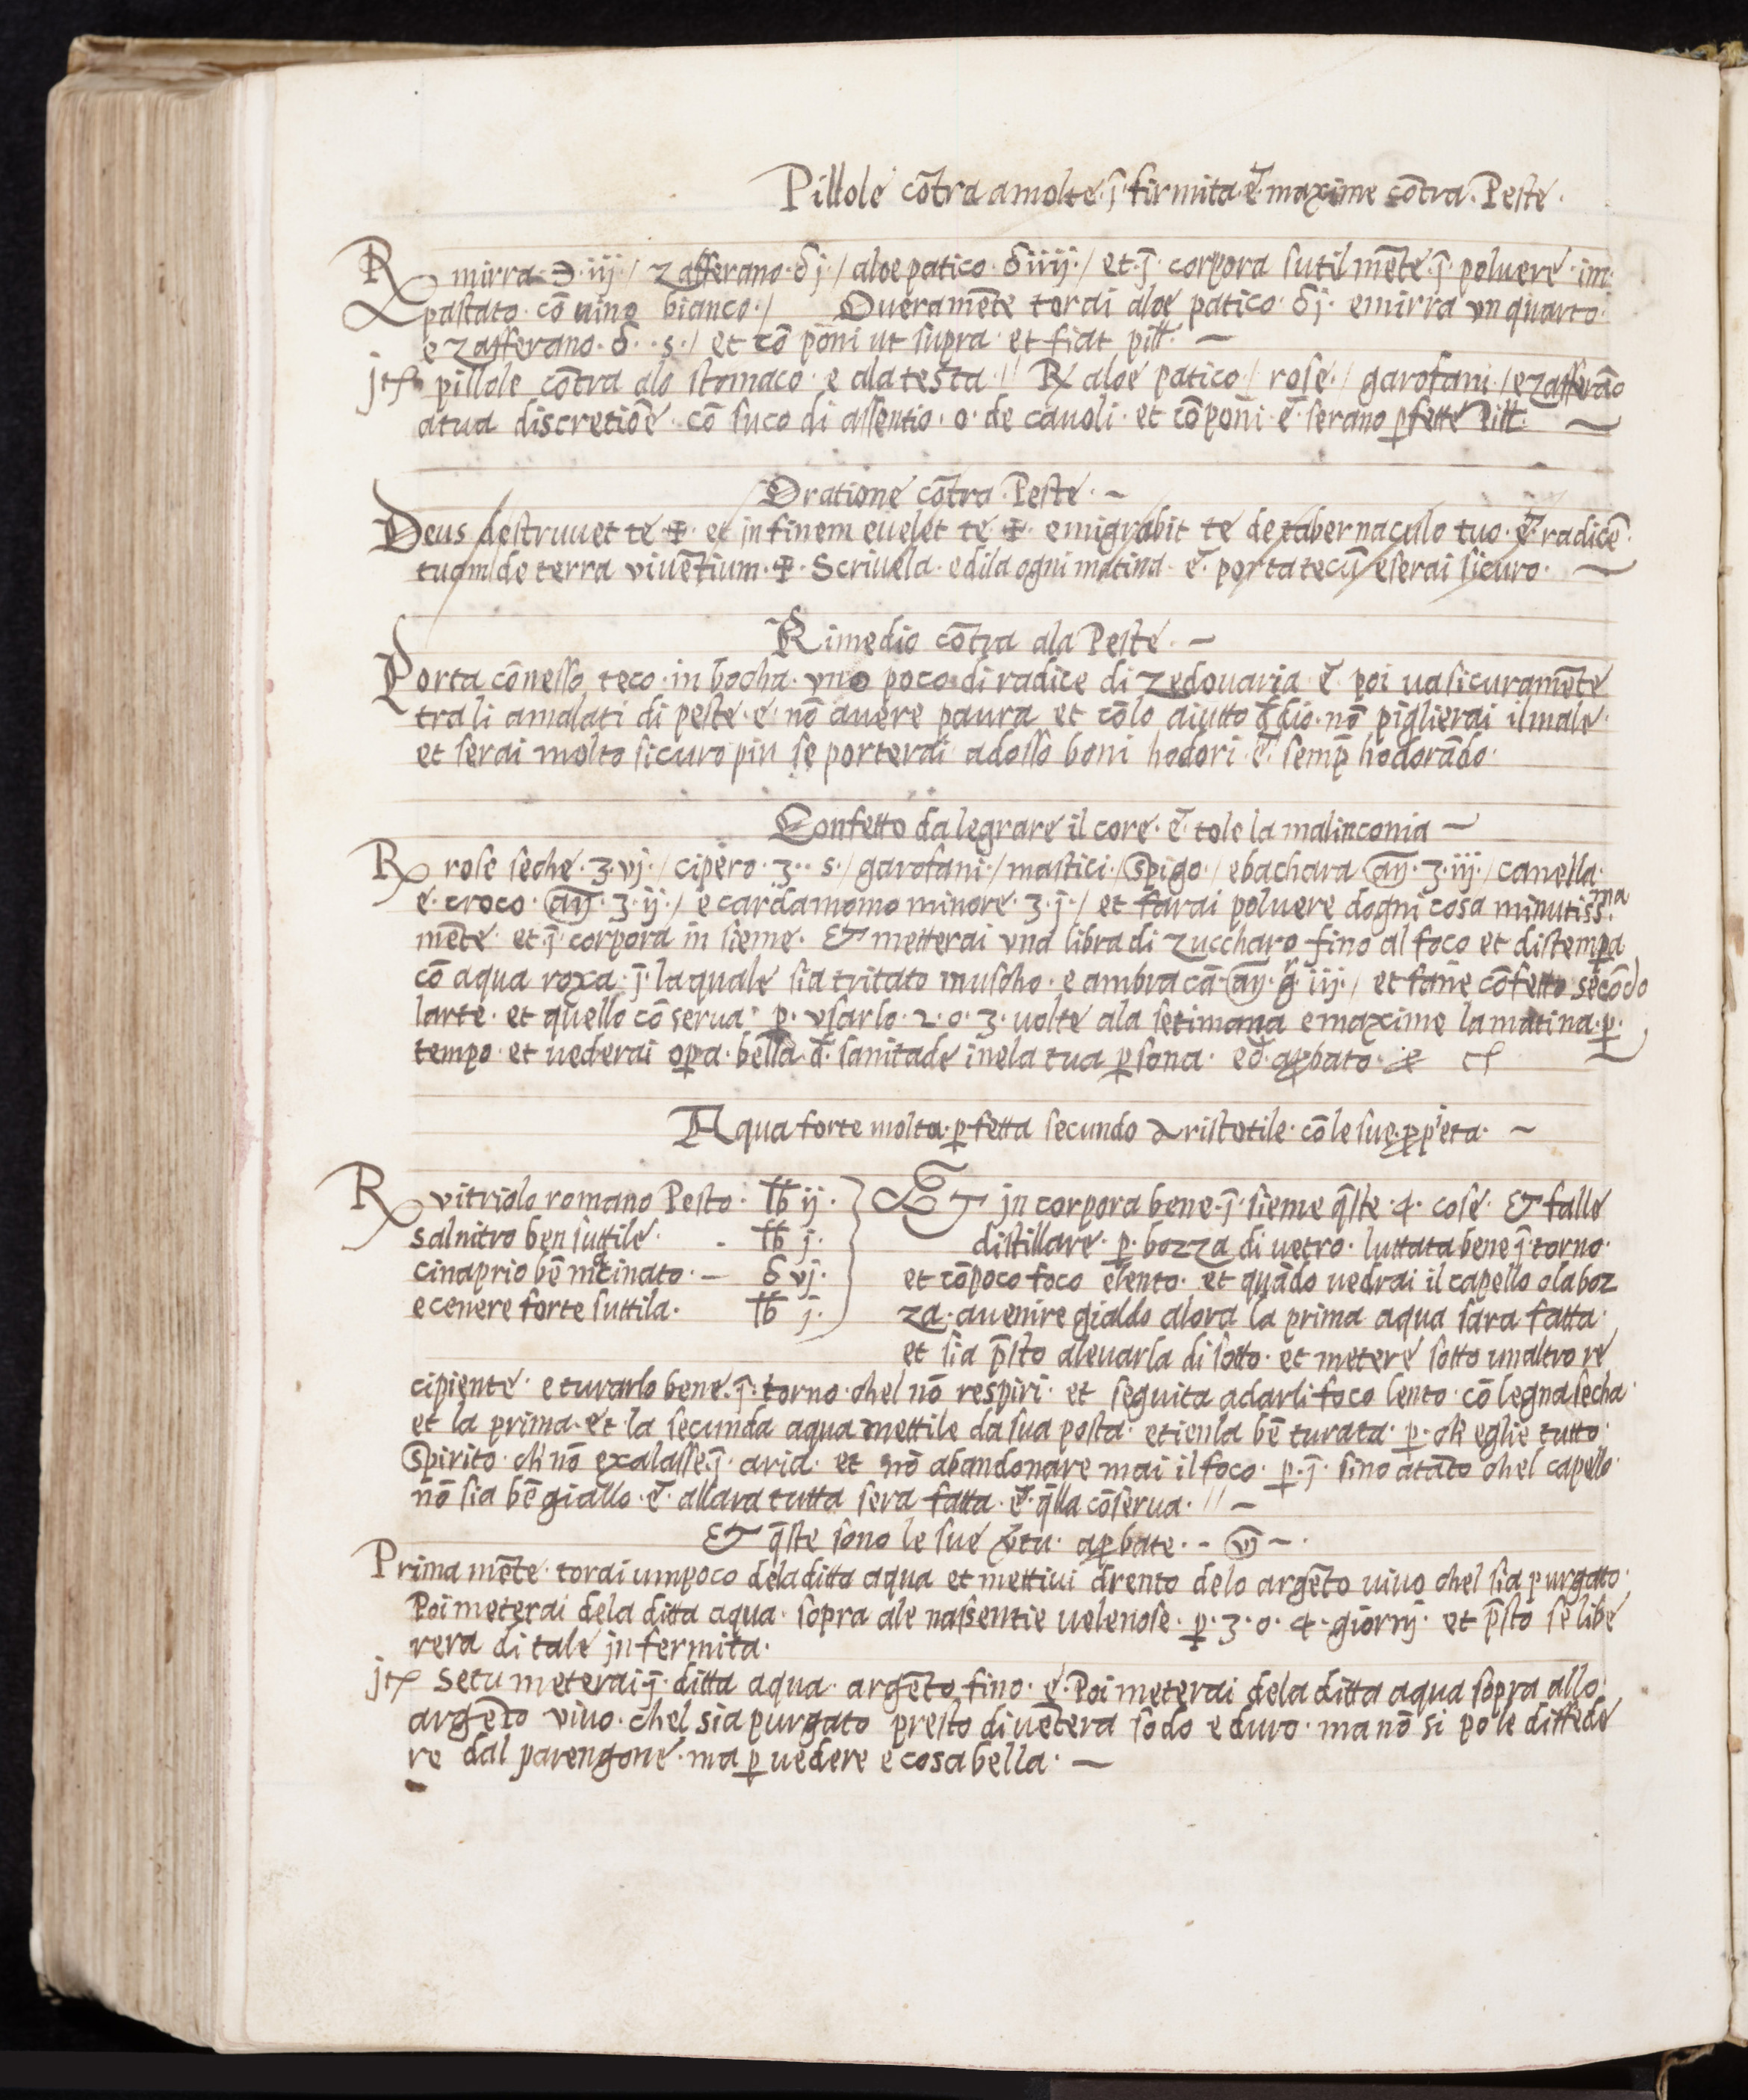 Pillole cōtra amolte · ī · firmita · ē · maxime cōtra · Peste ·
℞ mirra · ℈ · iij · / zafferano · δ j · / aloe patico · δ iiij · / et · ī · corpora sutil mēte · ī · poluere · im ·
pastato · cō uino bianco · / Oueramēte torai aloe patico · δ j · emirra vn quarto ·
e zafferano · δ · · s · / et cō pōni ut supra · et fiat pill · —
jtē pillole cōtra alo stomaco · e ala testa · // ℞ aloe patico / rose · / garofani · / e zafferāo
atua discretiōe · cō suco di assentio · o · de cauoli · et cōponi · ē · serano ꝑfette pill · —
Oratione cōtra · Peste · ~
Deus destruuet te ✠ · et in finem euelet te · ✠ · emigrabit te de tabernaculo tuo · ē · radicē ·
tuam de terra viuētium · ✠ · Scriuela · edila ogni matina · ē · porta tecū eserai sicuro · —
Rimedio cōtra ala Peste · —
Porta cōnesso teco · in bocha · vno poco di radice di zedouaria ē · poi ua sicuramēte
tra li amalati di peste · e · nō auere paura et cōlo aiutto d̄ dio · nō piglierai il male ·
et serai molto sicuro piu se porterai adosso boni hodori · ē · semꝑ hodorādo ·
Confetto da legrare il core · ē · tole la malinconia —
℞ rose seche · ʒ · vj · / cipero · ʒ · · s · / garofani · / mastici · / spigo · / ebachara añ · ʒ · iij · / canella ·
e · croco · añ · ʒ · ij · / e cardamomo minore · ʒ · j · / et farai poluere dogni cosa minutiss·ma
mēte · et · ī · corpora in sieme · Et metterai vna libra di zuccharo fino al foco et distempꝑa
cō aqua roxa · ī · la quale sia tritato muscho · e ambracā · añ · g · iij · / et fāne cōfetto secōdo
larte · et quello cō serua · ꝑ · vsarlo · 2 · o · 3 · uolte ala setimana e maxime la matina · ꝑ ·
tempo · et uederai oꝑa · bella · d̄ · sanitade inela tua ꝑsona · ed · aꝓbato ·
Aqua forte molta · ꝑfetta secundo Aristotile · cō le sue · ꝓpieta · ~
℞ vitriolo romano Pesto · ℔ ij ·
salnitro ben suttile · - ℔ j ·
cinaprio bē mcinato · — δ vj ·
e cenere forte suttila · ℔ j ·
Et jn corpora bene · ī · sieme q̄ste · 4 · cose · Et falle
distillare · ꝑ · bozza di uetro · luttata bene ī · torno ·
et cōpoco foco elento · et quādo uedrai il capello olaboz
za · auenire gialdo alora la prima aqua sara fatta ·
et sia p̄sto aleuarla di sotto · et metere sotto unaltro re
cipiente · e turarlo bene · ī · torno · chel nō respiri · et seguita adarli foco lento · cō legna secha ·
et la prima · et la secunda aqua mettile da sua posta · etienla bē turata · ꝑ · ch eglie tutto ·
spirito · ch nō exalasse · ī · aria · et nō abandonare mai il foco · ꝑ · ī · sino atāto chel capello ·
nō sia bē giallo · ē · allara tutta sera fatta · ē · q̄lla cōserua · // —
Et q̄ste sono le sue v̄tu · aꝓbate · - vj — ·
Prima mēte · torai umpoco dela ditta aqua et mettiui drento delo argēto uiuo chel sia purgatto ·
Poi meterai dela ditta aqua · sopra ale nassentie uelenose · ꝑ · 3 · o · 4 · giorni · et p̄sto se libe
rera di tale jn fermita ·
jtē se tu meterai · ī · ditta aqua · argēto fino · e · Poi meterai dela ditta aqua sopra allo
argēto viuo · chel sia purgato presto diuētera sodo e duro · ma nō si pole diffede
re dal parengone · ma ꝑ uedere e cosa bella · —